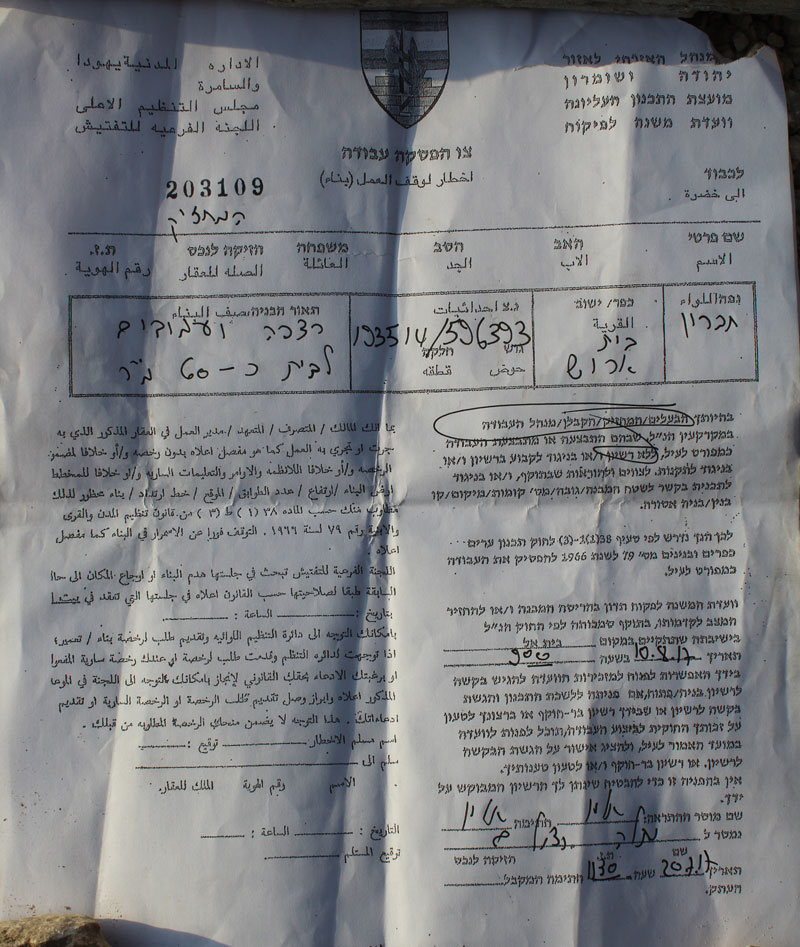 המנהל האזרחי לאזור
יהודה ושומרון
מועצת התכנון העליונה
וועדת משנה לפיקוח
الادارة المدنية يهودا
والسامرة
مجلس التنظيم الاعلى
اللجنه الفرعيه للتفتيش
צו הפסקת עבודה
اخطار لوقف العمل (بناء)
203109
המחזיק
לכבוד
الى حضرة
שם פרטי האב הסב משפחה הזיקה לנכס ת.ז.
الاسم الاب الجد العائلة الصله للعقار رقم الهوية
נפה/اللواء
חברון
כפר/ישוב
القرية
בית
נ.צ احداثيات
193514/596393
גוש חלקה
حوض قطعه
תאור הבניה/وصف البناء
לבית כ-60 מ"ר
בהיותך הבעלים/המחזיק/הקבלן/מנהל העבודה
במקרקעין הנ"ל, שבהם התבצעה או מתבצעת העבודה
כמפורט לעיל, ללא רשיון/או בניגוד לקבוע ברשיון ו/או
בניגוד לתקנות, לצווים ולהוראות שבתוקף, ו/או בניגוד
לתכנית בקשר לשטח המבנה/גובה/מס' קומות/מיקום/קו
בנין/בניה אסורה.
לכן הנך נדרש לפי סעיף 38(1)-(3) לחוק תכנון ערים
כפרים ובנינים מס' 79 לשנת 1966 להפסיק את העבודה
כמפורט לעיל.
וועדת המשנה לפקוח תדון בהריסת המבנה ו/או להחזיר
המצב לקדמותו, בתוקף סמכותה לפי החוק הנ"ל
בישיבתה שתתקיים במקום בית אל
תאריך 10.8.17 בשעה 900
בידך האפשרות לפנות למזכירות הוועדה להגיש בקשה
לרשיון בניה/פתוח, אם פנית ללשכת התכנון והגשת
בקשה לרשיון או שבידך רשיון בר-תוקף או ברצונך לטעון
על זכותך החוקית לביצוע העבודה, תוכל לפנות לוועדה
במועד האמור לעיל, ולהציג אישור על הגשת הבקשה
לרשיון, או רשיון בר-תוקף ו/או לטעון טענותיך.
אין בהפניה זו כדי להבטיח שינתן לך הרשיון המבוקש על
ידך.
שם מוסר ההתראה: חתימה
נמסר ל
שם ת.ז. הזיקה לנכס
תאריך 20.7.17 שעה 1130 חתימת המקבל
העתק.
بما انك المالك / المتصرف / المتعهد / مدير العمل في العقار المذكور الذي به
جرت او تجري به العمل كما هو مفصل اعلاه بدون رخصه و/او خلافا للمضمون
الرخصه و/او خلافا للانظمه والاوامر والتعليمات الساريه و/او خلافا للمخطط
البناء /ارتفاع / عدد الطوابق / الموقع / خط ارتداد / بناء محظور لذلك
مطلوب منك حسب الماده ٣٨ (١) ط (٣) من قانون تنظيم المدن والقرى
والابنية رقم ٧٩ لسنة ١٩٦٦ . التوقف فورا عن الاستمرار في البناء كما مفصل
اعلاه .
اللجنه الفرعية للتفتيش تبحث في جلستها هدم البناء او ارجاع المكان الى حالة
السابقة طبقا لصلاحيتها حسب القانون اعلاه في جلستها التي تنعقد في
بتاريخ : الساعة :
بامكانك التوجه الى دائرة التنظيم اللوائيه وتقديم طلب لرخصة بناء / تعمير؛
اذا توجهت لدائرة التنظيم وقدمت طلب لرخصة او عندك رخصة سارية المفعول
او برغبتك الادعاء بحقك القانوني لإنجاز بامكانك التوجه الى اللجنة في الموعد
المذكور اعلاه وابراز وصل تقديم طلب الرخصة او الرخصة السارية او تقديم
ادعاءاتك . هذا التوجه لا يضمن منحك الرخصة المطلوبه من قبلك .
اسم مسلم الاخطار: توقيع :
سلم الى
الاسم رقم الهوية الملك للعقار.
التاريخ : الساعة :
توقيع المستلم